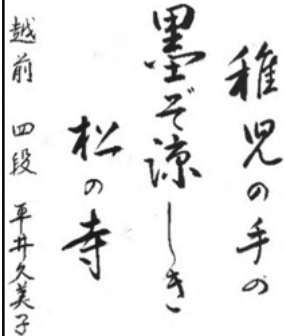 稚児の手の
墨ぞ涼しき
松の寺
越前 四段 平井久美子